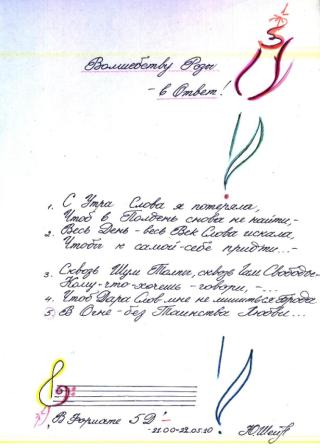 Волшебству Розы
- в Ответ!
1. С Утра Слова я потеряла,
Чтоб в Полдень снова не найти,-
2. Весь День - весь Век Слова искала,
Чтобы к самой-себе прийти...-
3. Сквозь Шум Толпы, сквозь Гам Свободы-
Кому-что-хочешь-говори,-...
4. Чтоб Дара Слов мне не лишиться
5. В Огне - без Таинства Любви...
"В Формате 5D"-
-21.00-22.05.10